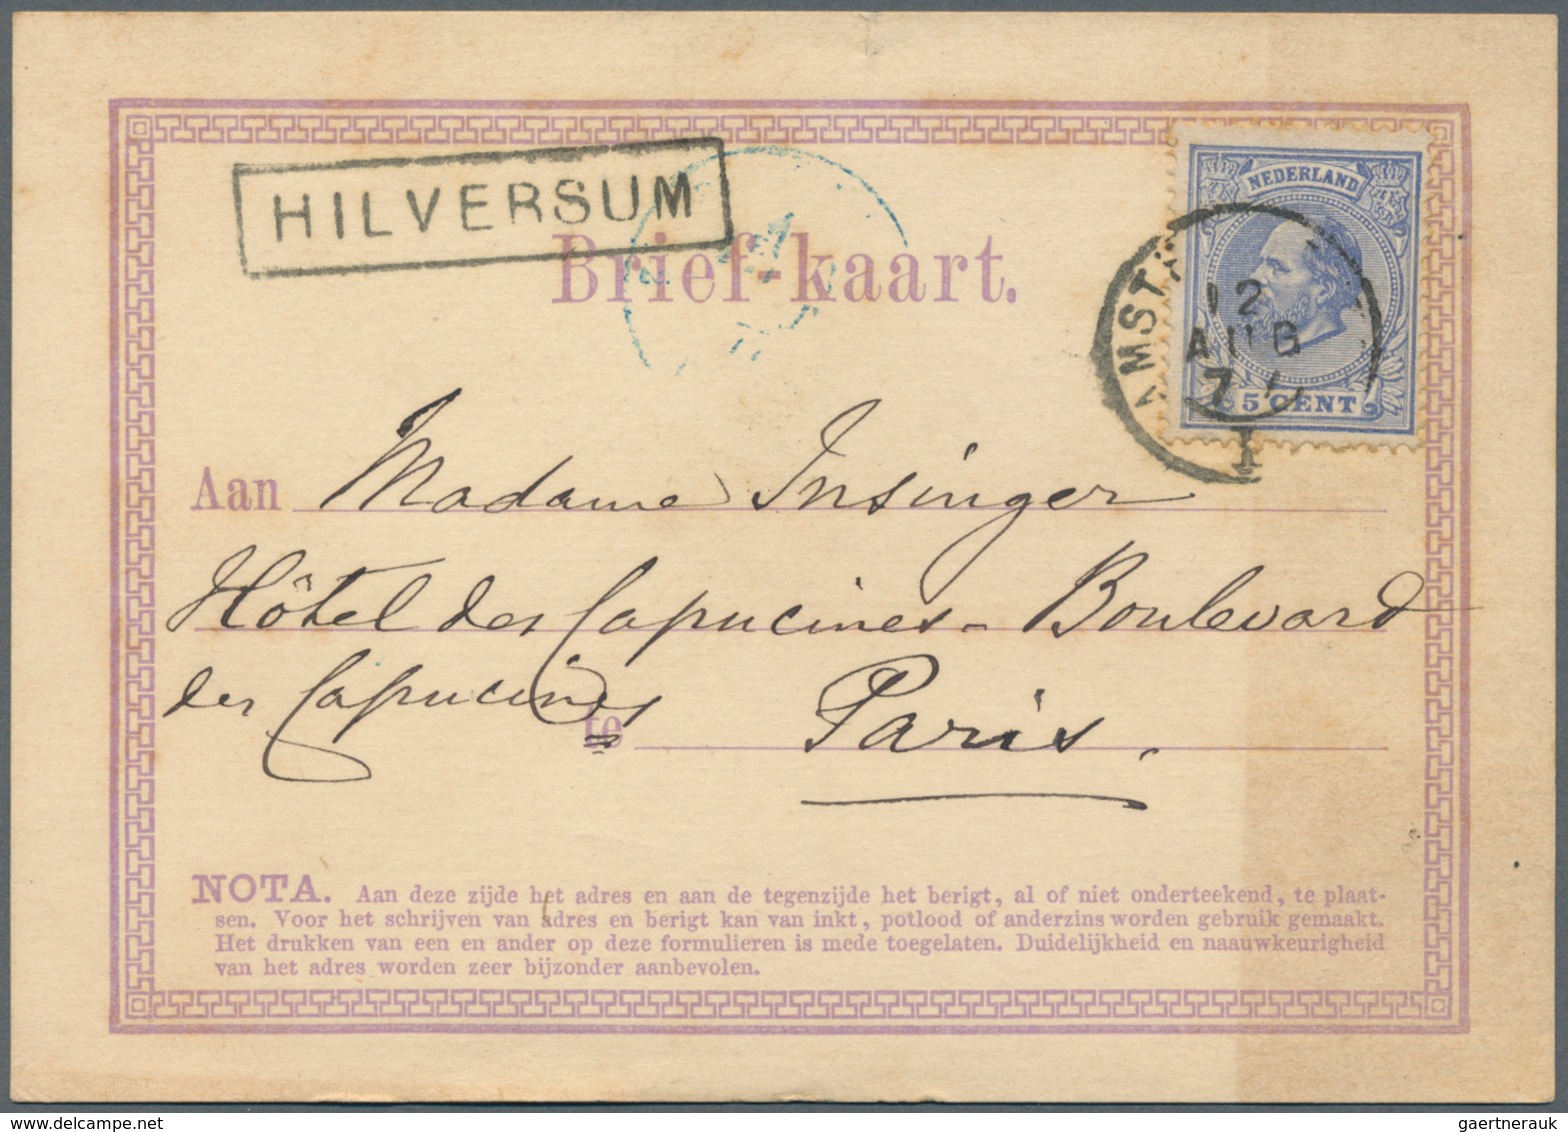 HILVERSUM
NEDERLAND
12
AUG
5 CENT
I
Brief-kaart.
Aan Madame Insinger
Hôtel des Capucines - Boulevard
des Capucines te Paris.
NOTA. Aan deze zijde het adres en aan de tegenzijde het berigt, al of niet onderteekend, te plaat-
sen. Voor het schrijven van adres en berigt kan van inkt, potlood of anderzins worden gebruik gemaakt.
Het drukken van een en ander op deze formulieren is mede toegelaten. Duidelijkheid en naauwkeurigheid
van het adres worden zeer bijzonder aanbevolen.
gaertnerauk @ www.delcampe.net